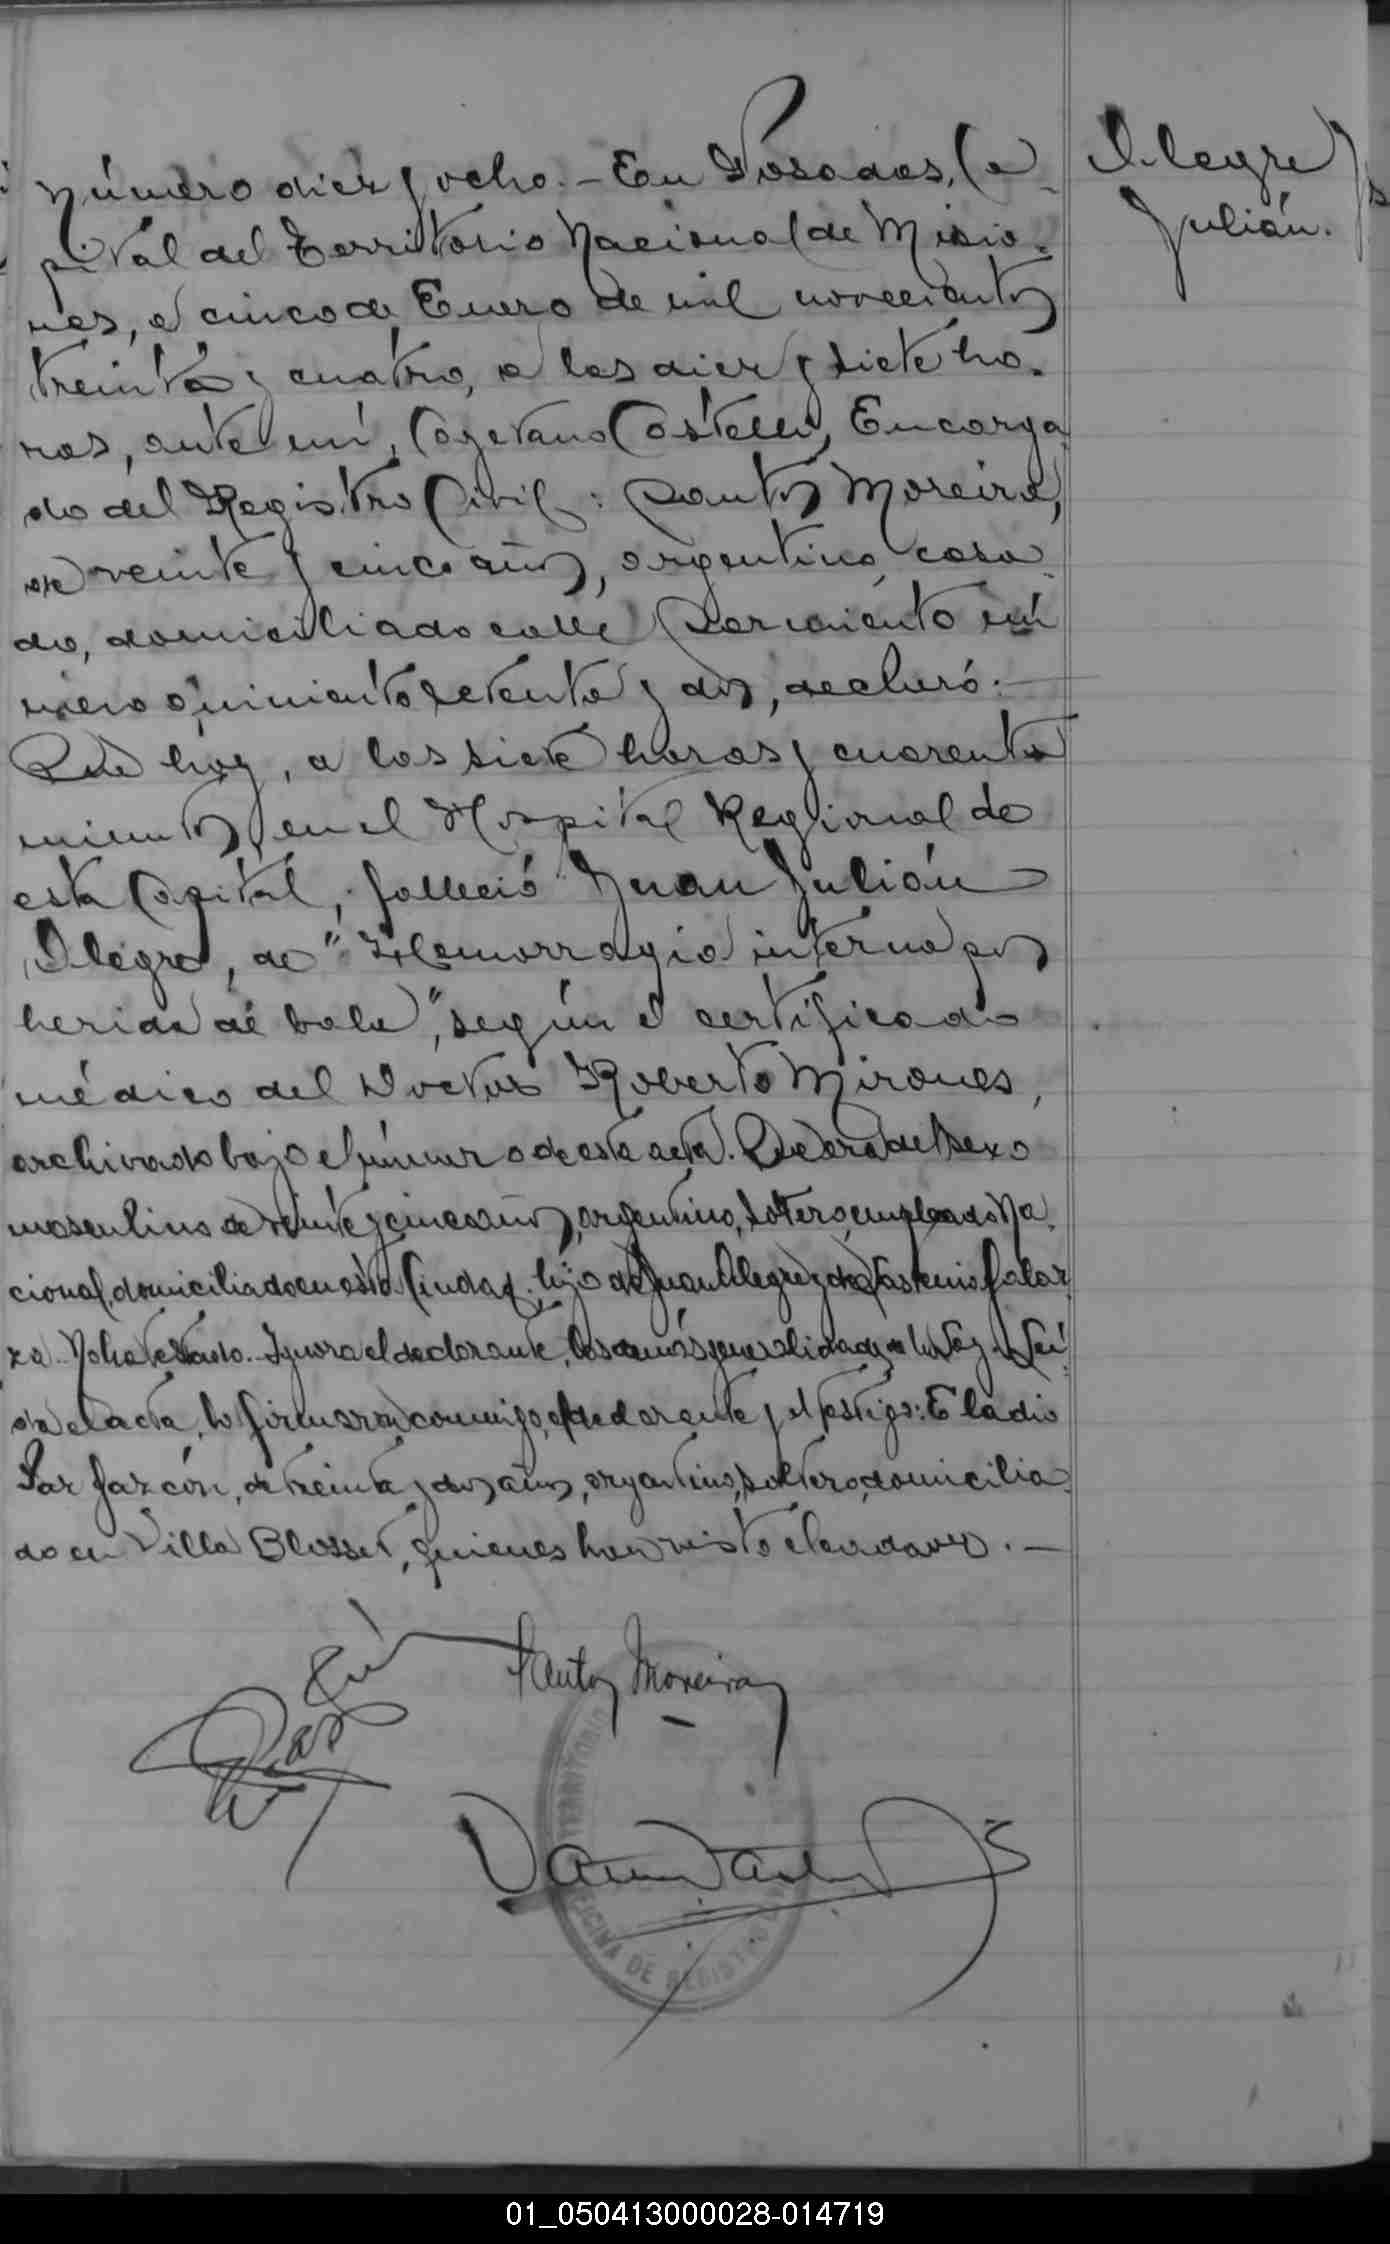 Alegre
Julián.
Número diez y ocho.- En Posadas, Ca-
pital del Territorio Nacional de Misio-
nes, a cinco de Enero de mil novecientos
treinta y cuatro, a las diez y siete ho-
ras, ante mí, Cayetano Castelli, Encarga
do del Registro Civil: Santos Moreira,
de veinte y cinco años, argentino, casa-
do, domiciliado calle Sarmiento nú
mero quiniento setenta y dos, declaró:
Que hoy, a las siete horas y cuarenta
minutos en el Hospital Regional de
esta Capital, falleció Juan Julián
Alegre, de "Hemorragia interna por
herida de bala", según el certificado
médico del Doctor Roberto Mirones,
archivado bajo el número de esta acta. Que era del sexo
masculino de veinte y cinco años, argentino, soltero, empleado Na-
cional, domiciliado en esta Ciudad, hijo de Juan Alegre y de Galar-
za. No ha testado. Ignora el declarante, las demás generalidades Leí-
da el acta, la firmaron conmigo, el declarante y el testigo: Eladio
de treinta y dos años, argentino, soltero, domicilia-
do en Villa Blosset, quienes han visto el cadáver.-
Santos Moreira
TERRITORIO
OFICINA DE REGISTRO
01_050413000028-014719